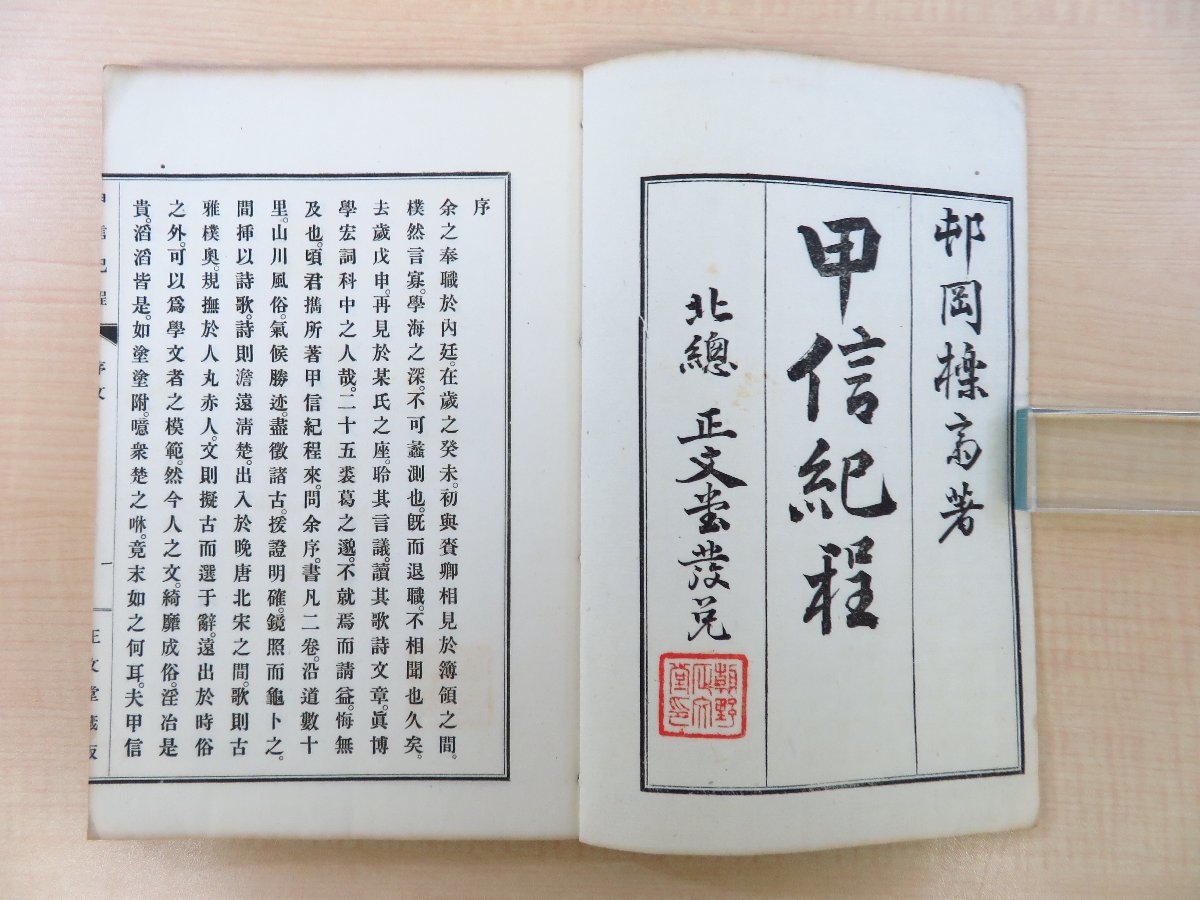 邨岡櫟斎著
甲信紀程
北總 正文堂發兌
序
余之奉職於内廷。在歲之癸未。初與賚卿相見於簿領之間。
樸然言寡。學海之深。不可蠡測也。既而退職。不相聞也久矣。
去歲戊申。再見於某氏之座。聆其言議。讀其歌詩文章。眞博
學宏詞科中之人哉。二十五裘葛之邈。不就焉而請益。悔無
及也。頃君擕所著甲信紀程來。問余序。書凡二卷。沿道數十
里。山川風俗。氣候勝迹。盡徵諸古。援證明確。鏡照而龜卜之。
間揷以詩歌。詩則澹遠淸楚。出入於晩唐北宋之間。歌則古
雅樸奧。規撫於人丸赤人。文則擬古而選于辭。遠出於時俗
之外。可以爲學文者之模範。然今人之文。綺靡成俗。淫冶是
貴。滔滔皆是。如塗塗附。噫衆楚之咻。竟末如之何耳。夫甲信
甲信紀程
序文
一
正文堂藏版